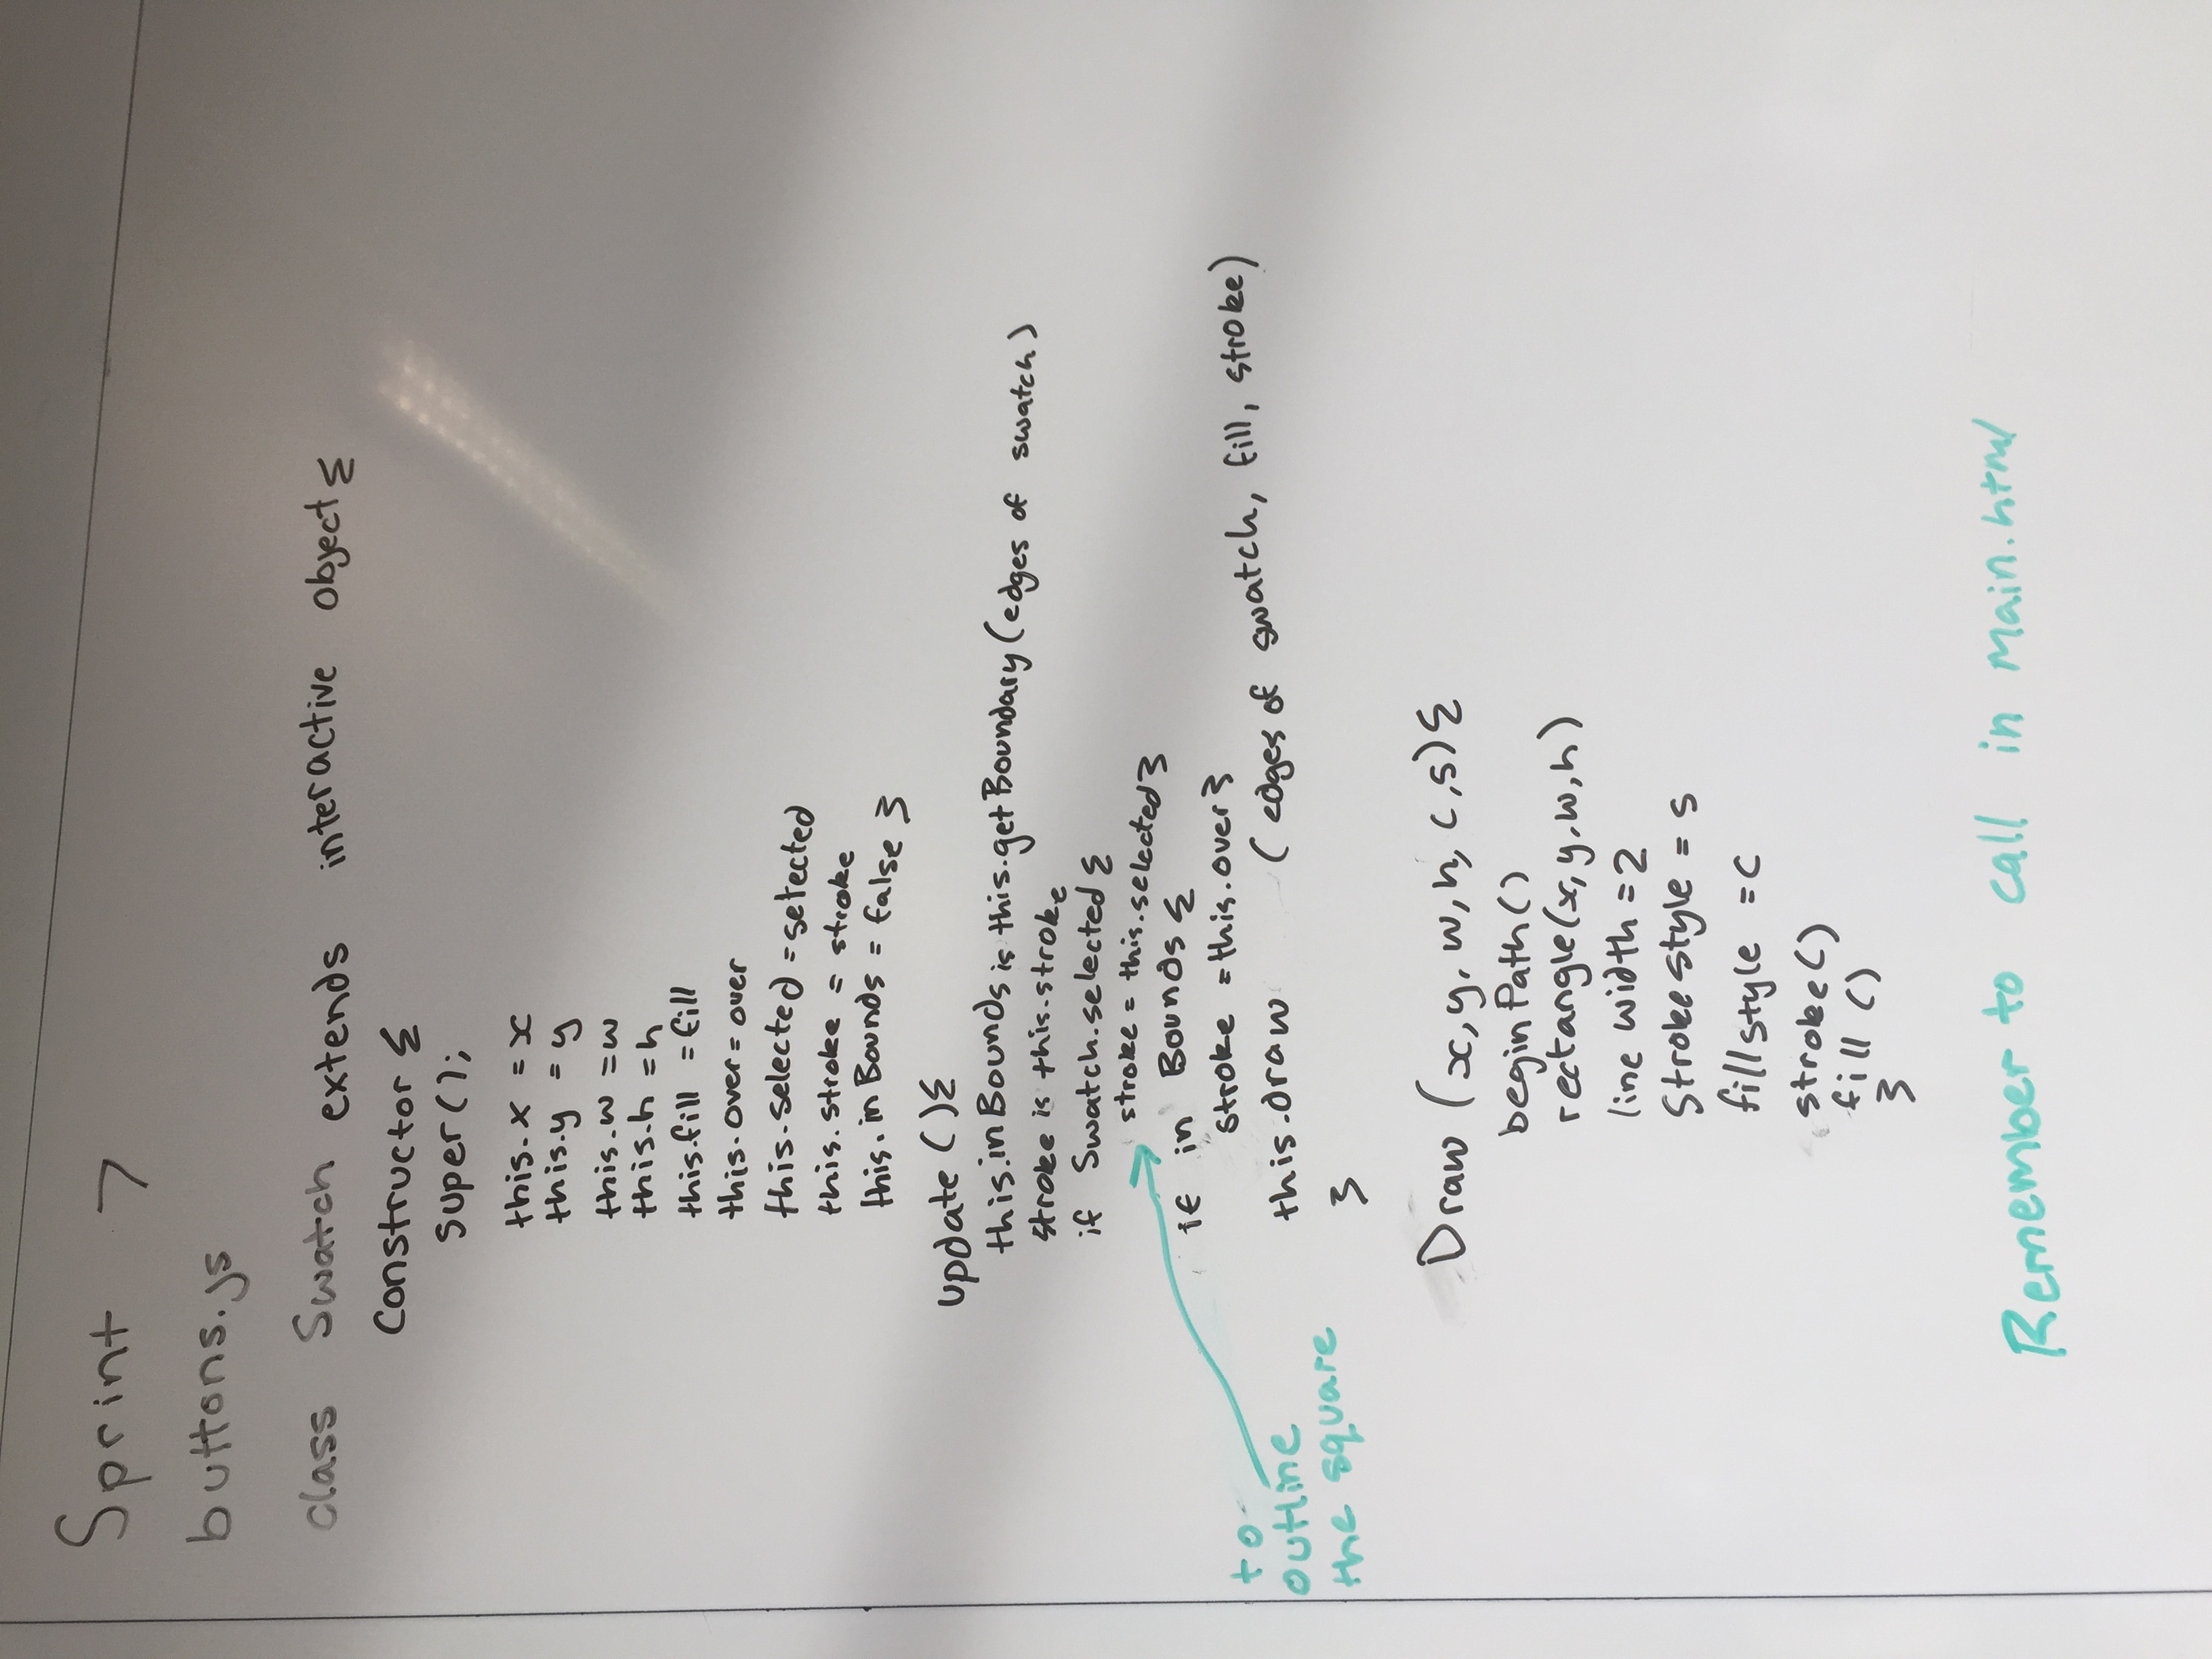 Sprint 7
buttons.js
class Swatch extends interactive object {
Constructor {
super();
this.x = x
this.y = y
this.w = w
this.h = h
this.fill = fill
this.over = over
this.selected = selected
this.stroke = stroke
this.inBounds = false }
update (){
this.inBounds is this.getBoundary (edges of swatch)
stroke is this.stroke
if Swatch.selected {
stroke = this.selected }
if in Bounds {
stroke = this.over }
this.draw (edges of swatch, fill, stroke)
}
to
outline
the square
Draw (x, y, w, h, c, s) {
beginPath()
rectangle(x, y, w, h)
line width = 2
Stroke style = s
fillstyle = c
stroke()
fill ()
}
Remember to call in Main.html